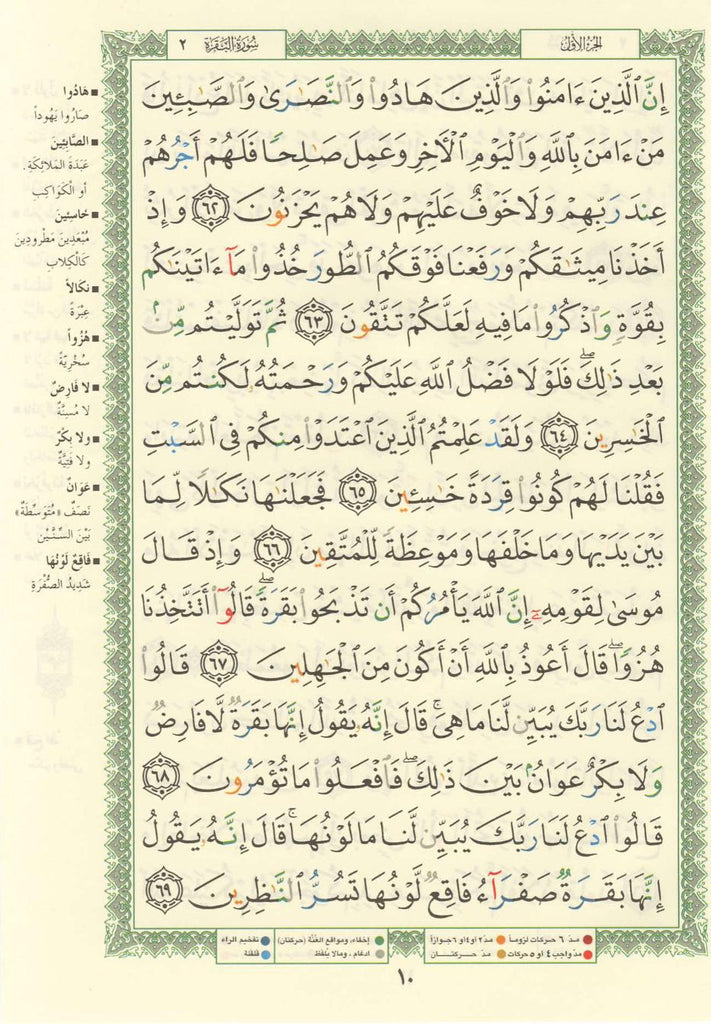 الجزء الأول
سورة البقرة ٢
إِنَّ ٱلَّذِينَ ءَامَنُوا۟ وَٱلَّذِينَ هَادُوا۟ وَٱلنَّصَـٰرَىٰ وَٱلصَّـٰبِـِٔينَ
مَنْ ءَامَنَ بِٱللَّهِ وَٱلْيَوْمِ ٱلْـَٔاخِرِ وَعَمِلَ صَـٰلِحًا فَلَهُمْ أَجْرُهُمْ
عِندَ رَبِّهِمْ وَلَا خَوْفٌ عَلَيْهِمْ وَلَا هُمْ يَحْزَنُونَ ٦٢ وَإِذْ
أَخَذْنَا مِيثَـٰقَكُمْ وَرَفَعْنَا فَوْقَكُمُ ٱلطُّورَ خُذُوا۟ مَآ ءَاتَيْنَـٰكُم
بِقُوَّةٍ وَٱذْكُرُوا۟ مَا فِيهِ لَعَلَّكُمْ تَتَّقُونَ ٦٣ ثُمَّ تَوَلَّيْتُم مِّنۢ
بَعْدِ ذَٰلِكَ ۖ فَلَوْلَا فَضْلُ ٱللَّهِ عَلَيْكُمْ وَرَحْمَتُهُۥ لَكُنتُم مِّنَ
ٱلْخَـٰسِرِينَ ٦٤ وَلَقَدْ عَلِمْتُمُ ٱلَّذِينَ ٱعْتَدَوْا۟ مِنكُمْ فِى ٱلسَّبْتِ
فَقُلْنَا لَهُمْ كُونُوا۟ قِرَدَةً خَـٰسِـِٔينَ ٦٥ فَجَعَلْنَـٰهَا نَكَـٰلًا لِّمَا
بَيْنَ يَدَيْهَا وَمَا خَلْفَهَا وَمَوْعِظَةً لِّلْمُتَّقِينَ ٦٦ وَإِذْ قَالَ
مُوسَىٰ لِقَوْمِهِۦٓ إِنَّ ٱللَّهَ يَأْمُرُكُمْ أَن تَذْبَحُوا۟ بَقَرَةً ۖ قَالُوٓا۟ أَتَتَّخِذُنَا
هُزُوًا ۖ قَالَ أَعُوذُ بِٱللَّهِ أَنْ أَكُونَ مِنَ ٱلْجَـٰهِلِينَ ٦٧ قَالُوا۟
ٱدْعُ لَنَا رَبَّكَ يُبَيِّن لَّنَا مَا هِىَ ۚ قَالَ إِنَّهُۥ يَقُولُ إِنَّهَا بَقَرَةٌ لَّا فَارِضٌ
وَلَا بِكْرٌ عَوَانٌۢ بَيْنَ ذَٰلِكَ ۖ فَٱفْعَلُوا۟ مَا تُؤْمَرُونَ ٦٨
قَالُوا۟ ٱدْعُ لَنَا رَبَّكَ يُبَيِّن لَّنَا مَا لَوْنُهَا ۚ قَالَ إِنَّهُۥ يَقُولُ
إِنَّهَا بَقَرَةٌ صَفْرَآءُ فَاقِعٌ لَّوْنُهَا تَسُرُّ ٱلنَّـٰظِرِينَ ٦٩
■ هَادُوا
صَارُوا يَهُوداً
■ الصَّابِئِينَ
عَبَدَةَ المَلائِكَةِ.
أو الْكَوَاكِبِ
■ خَاسِئِينَ
مُبْعَدِينَ مَطْرودِينَ
كَالْكِلاب
■ نَكالاً
عِبْرَةً
■ هُزُواً
سُخْرِيَّةً
■ لا فَارِضٌ
لا مُسِنَّةٌ
■ ولا بِكْرٌ
ولا فَتِيَّةٌ
■ عَوَانٌ
نَصَفٌ «مُتَوَسِّطَةٌ»
بَيْنَ السِّنَّيْنِ
■ فَاقِعٌ لَوْنُهَا
شَدِيدُ الصُّفْرَةِ
مدّ ٦ حركات لزوماً مدّ ٢ أو ٤ أو ٦ جوازاً
مدّ واجب ٤ أو ٥ حركات مدّ حـركتــان
إخفاء، ومواقع الغُنَّة (حركتان) تفخيم الراء
ادغام ، ومالا يُلفَظ قلقلة
١٠